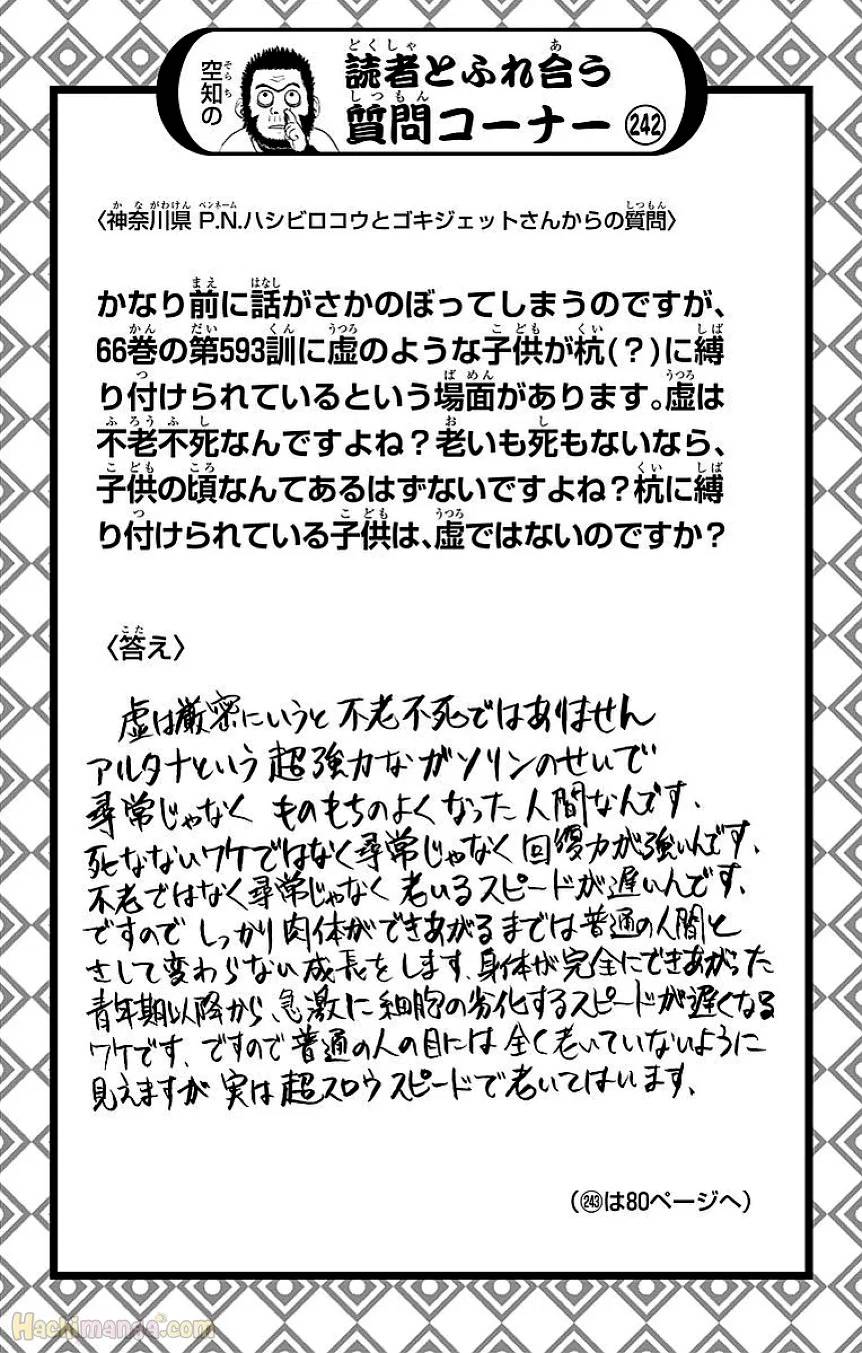 空知の
読者とふれ合う
質問コーナー 242
〈神奈川県 P.N.ハシビロコウとゴキジェットさんからの質問〉
かなり前に話がさかのぼってしまうのですが、
66巻の第593訓に虚のような子供が杭(？)に縛
り付けられているという場面があります。虚は
不老不死なんですよね？老いも死もないなら、
子供の頃なんてあるはずないですよね？杭に縛
り付けられている子供は、虚ではないのですか？
〈答え〉
虚は厳密にいうと不老不死ではありません
アルタナという超強力なガソリンのせいで
尋常じゃなくものもちのよくなった人間なんです、
死なないワケではなく尋常じゃなく回復力が強いんです、
不老ではなく尋常じゃなく老いるスピードが遅いんです、
ですのでしっかり肉体ができあがるまでは普通の人間と
さして変わらない成長をします、身体が完全にできあがった
青年期以降から、急激に細胞の劣化するスピードが遅くなる
ワケです、ですので普通の人の目には全く老いていないように
見えますが実は超スロウスピードで老いてはいます、
(243は80ページへ)
Hachimanga.com